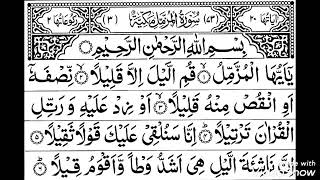 اٰيَاتُهَا ٢٠ (٧٣) سُوْرَةُ الْمُزَّمِّلِ مَكِّيَّةٌ (٣) رُكُوْعَاتُهَا ٢
بِسْمِ اللهِ الرَّحْمٰنِ الرَّحِيْمِ
يٰۤاَيُّهَا الْمُزَّمِّلُ قُمِ الَّيْلَ اِلَّا قَلِيْلًا نِّصْفَهٗۤ
اَوِ انْقُصْ مِنْهُ قَلِيْلًا اَوْ زِدْ عَلَيْهِ وَ رَتِّلِ
الْقُرْاٰنَ تَرْتِيْلًا اِنَّا سَنُلْقِيْ عَلَيْكَ قَوْلًا ثَقِيْلًا
اِنَّ نَاشِئَةَ الَّيْلِ هِيَ اَشَدُّ وَطْاً وَّاَقْوَمُ قِيْلًا